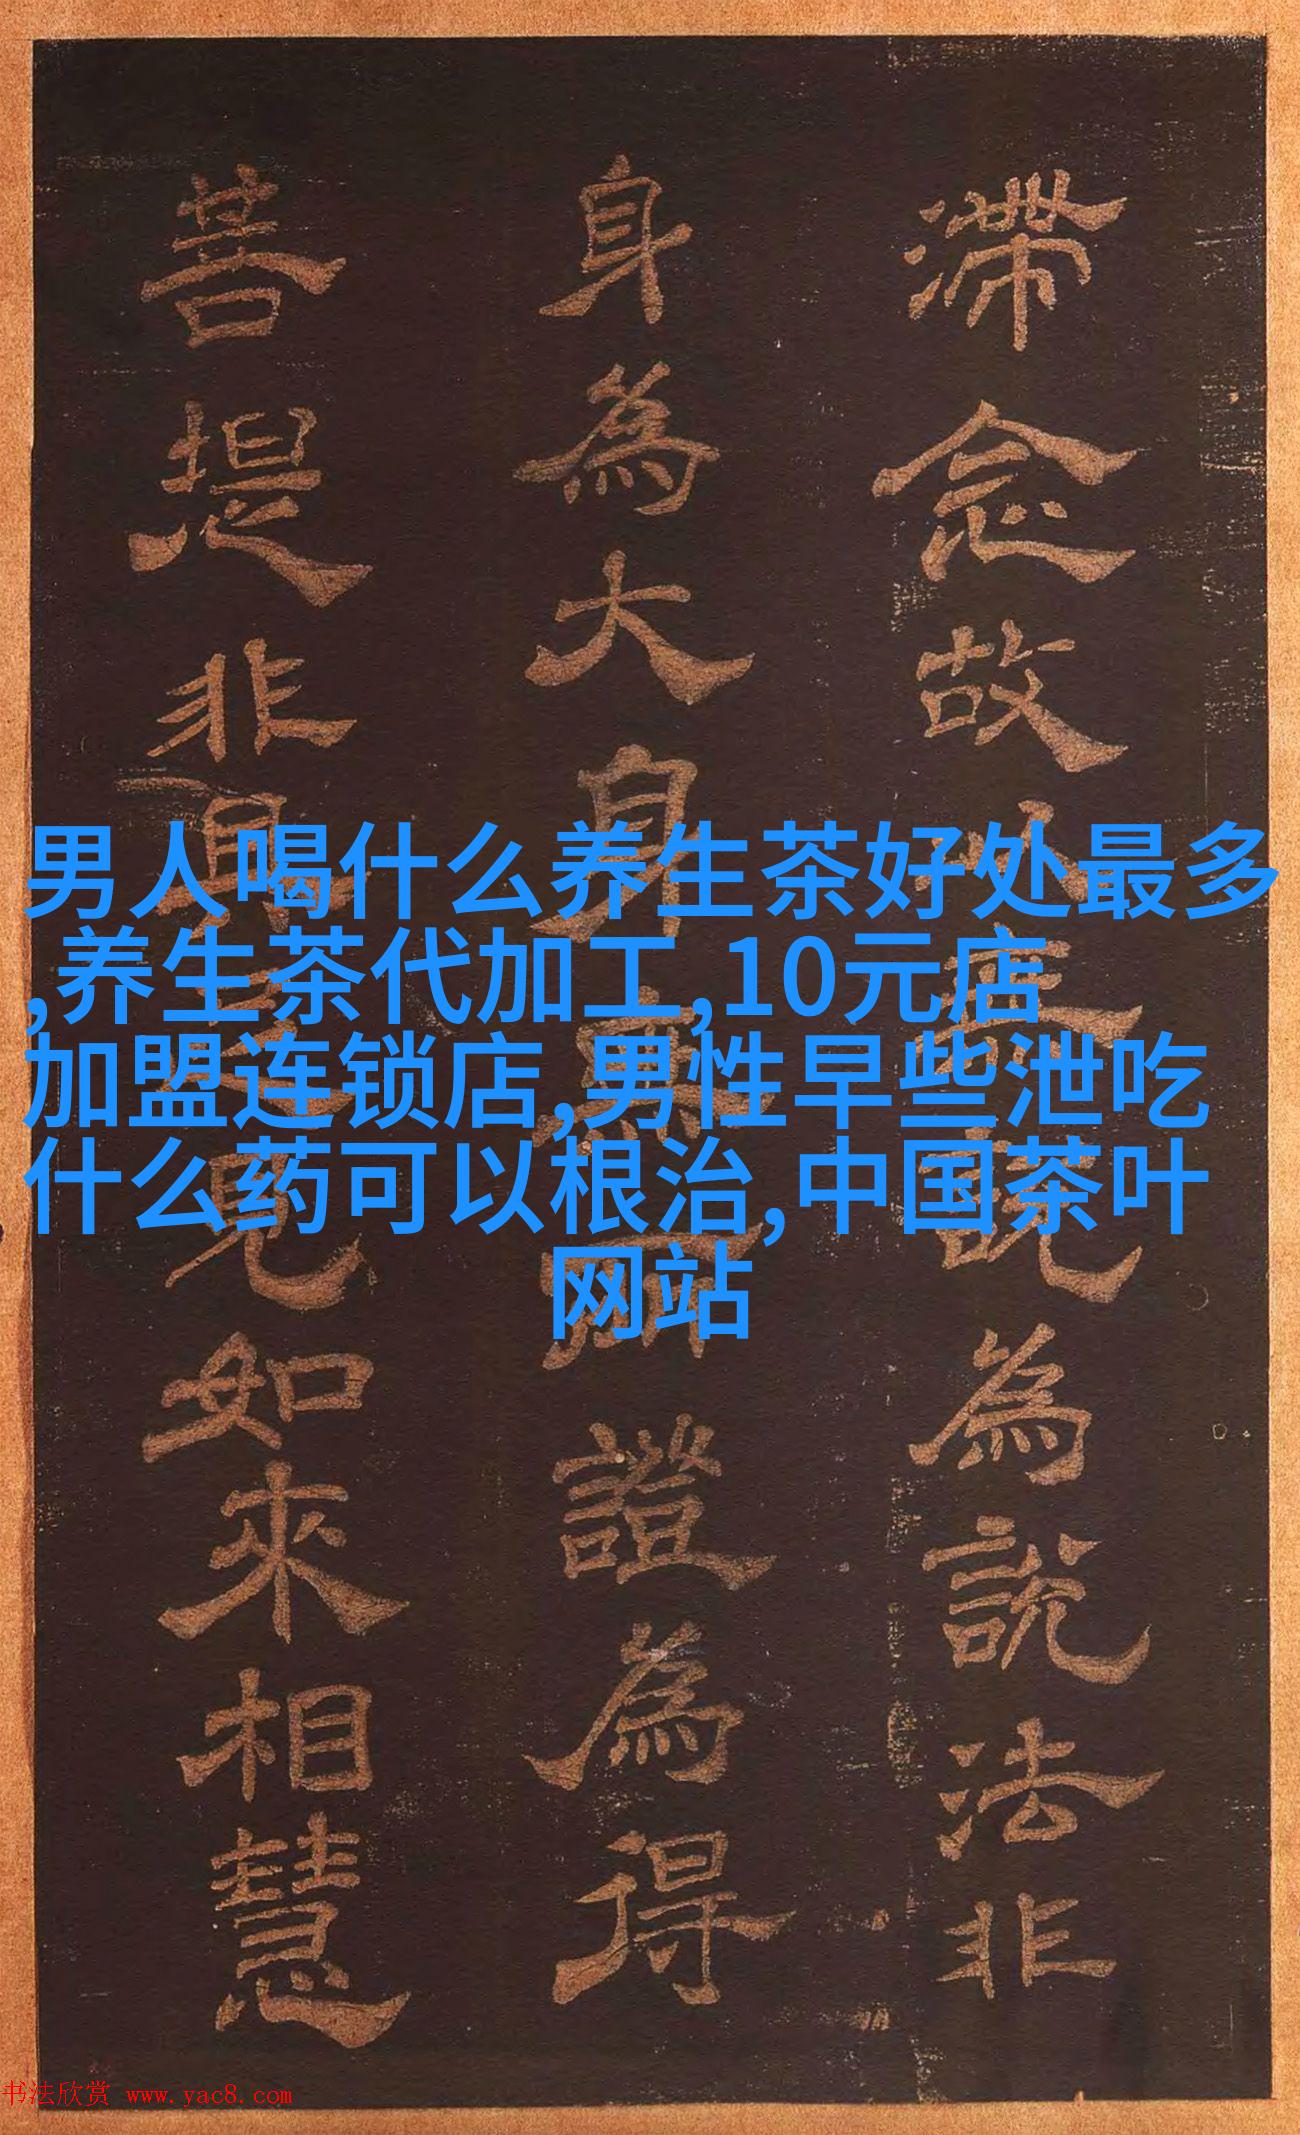 男人喝什么养生茶好处最多
,养生茶代加工,10元店
加盟连锁店,男性早些泄吃
什么药可以根治,中国茶叶
网站
滯念故以是說為說法非
身為大身無所證為得
菩提非具足見如來相慧
书法欣赏 www.yac8.com